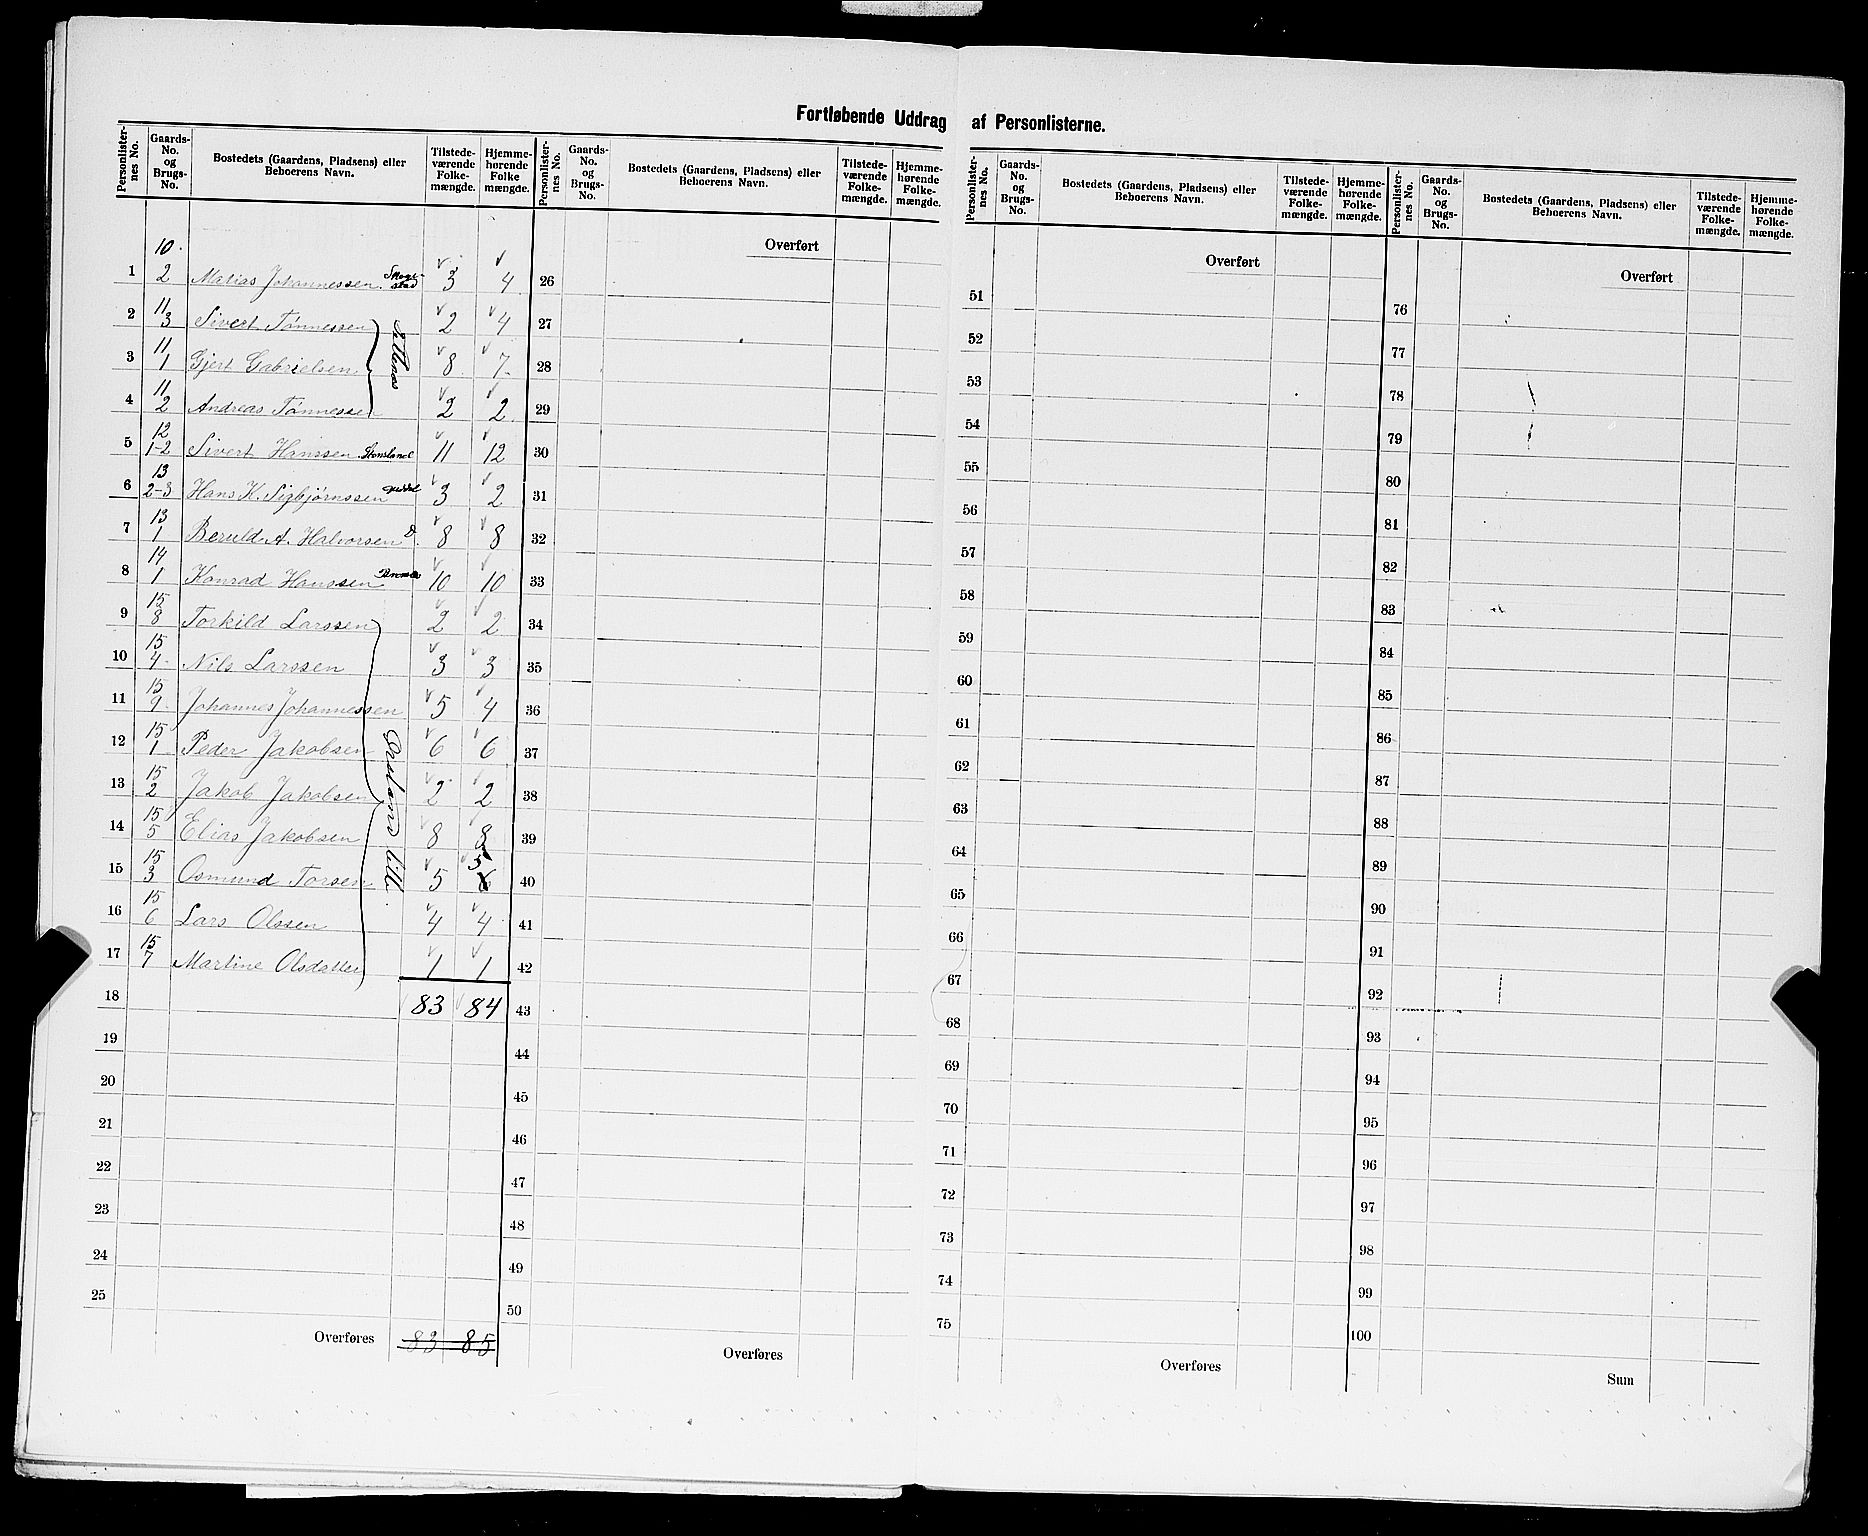 Fortløbende Uddrag af Personlisterne.
Personlister-nes No. | Gaards-No. og Brugs-No. | Bostedets (Gaardens, Pladsens) eller Beboerens Navn. | Tilstede-værende Folke-mængde. | Hjemme-hørende Folke mængde.
1 | 10 / 2 | Matias Johannessen | 3 | 4
2 | 11 / 3 | Sivert Tønnessen | 2 | 4
3 | 11 / 1 | Gjert Gabrielsen | 8 | 7
4 | 11 / 2 | Andreas Tønnessen | 2 | 2
5 | 12 / 1-2 | Sivert Hanssen | 11 | 12
6 | 13 / 2-3 | Hans K. Sigbjørnssen | 3 | 2
7 | 13 / 1 | Beruld A. Halvorsen | 8 | 8
8 | 14 / 1 | Konrad Hanssen | 10 | 10
9 | 15 / 8 | Torkild Larssen | 2 | 2
10 | 15 / 4 | Nils Larssen | 3 | 3
11 | 15 / 9 | Johannes Johannessen | 5 | 4
12 | 15 / 1 | Peder Jakobsen | 6 | 6
13 | 15 / 2 | Jakob Jakobsen | 2 | 2
14 | 15 / 5 | Elias Jakobsen | 8 | 8
15 | 15 / 3 | Osmund Torsen | 5 | 5 6
16 | 15 / 6 | Lars Olssen | 4 | 4
17 | 15 / 7 | Martine Olsdatter | 1 | 1
18 | 83 | 84
19
20
21
22
23
24
25
Overføres 83 85
Personlister-nes No. | Gaards-No. og Brugs-No. | Bostedets (Gaardens, Pladsens) eller Beboerens Navn. | Tilstede-værende Folke-mængde. | Hjemme-hørende Folke-mængde.
Overført
26
27
28
29
30
31
32
33
34
35
36
37
38
39
40
41
42
43
44
45
46
47
48
49
50
Overføres
Personlister-nes No. | Gaards-No. og Brugs-No. | Bostedets (Gaardens, Pladsens) eller Beboerens Navn. | Tilstede-værende Folke-mængde. | Hjemme-hørende Folke-mængde.
Overført
51
52
53
54
55
56
57
58
59
60
61
62
63
64
65
66
67
68
69
70
71
72
73
74
75
Overføres
Personlister-nes No. | Gaards-No. og Brugs-No. | Bostedets (Gaardens, Pladsens) eller Beboerens Navn. | Tilstede-værende Folke-mængde. | Hjemme-hørende Folke-mængde.
Overført
76
77
78
79
80
81
82
83
84
85
86
87
88
89
90
91
92
93
94
95
96
97
98
99
100
Sum